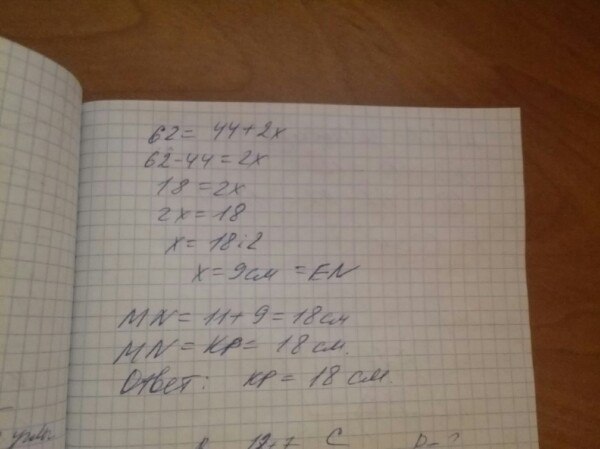 62 = 44+2x
62-44=2x
18 = 2x
2x=18
x= 18:2
x=9см = EN
MN= 11+9=18см
MN= KP= 18см.
Ответ: KP= 18см.
12+7 C